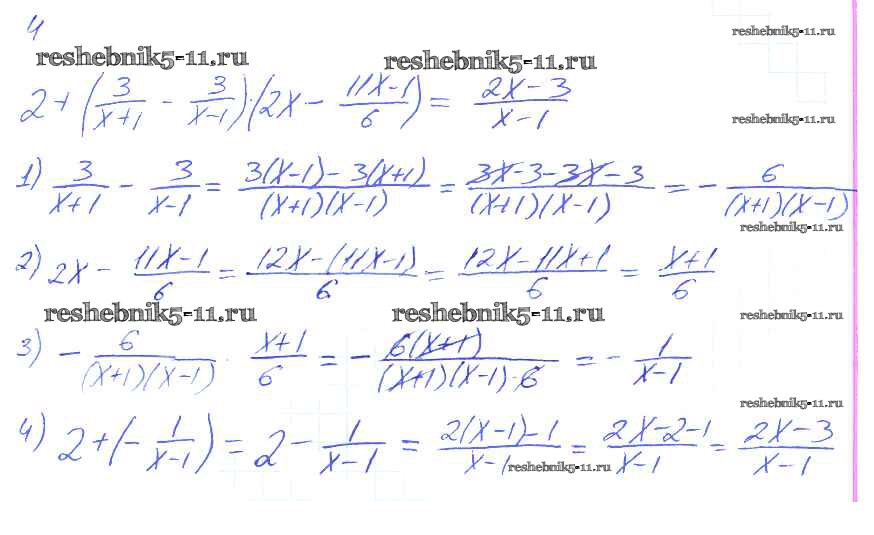 4
reshebnik5-11.ru reshebnik5-11.ru reshebnik5-11.ru
2 + (3/(x+1) - 3/(x-1))·(2x - (11x-1)/6) = (2x-3)/(x-1)
reshebnik5-11.ru
1) 3/(x+1) - 3/(x-1) = (3(x-1) - 3(x+1))/((x+1)(x-1)) = (3x-3-3x-3)/((x+1)(x-1)) = - 6/((x+1)(x-1))
reshebnik5-11.ru
2) 2x - (11x-1)/6 = (12x-(11x-1))/6 = (12x-11x+1)/6 = (x+1)/6
reshebnik5-11.ru reshebnik5-11.ru reshebnik5-11.ru
3) - 6/((x+1)(x-1)) · (x+1)/6 = - 6(x+1)/((x+1)(x-1)·6) = - 1/(x-1)
reshebnik5-11.ru
4) 2+(- 1/(x-1)) = 2 - 1/(x-1) = (2(x-1)-1)/(x-1) = (2x-2-1)/(x-1) = (2x-3)/(x-1)
reshebnik5-11.ru